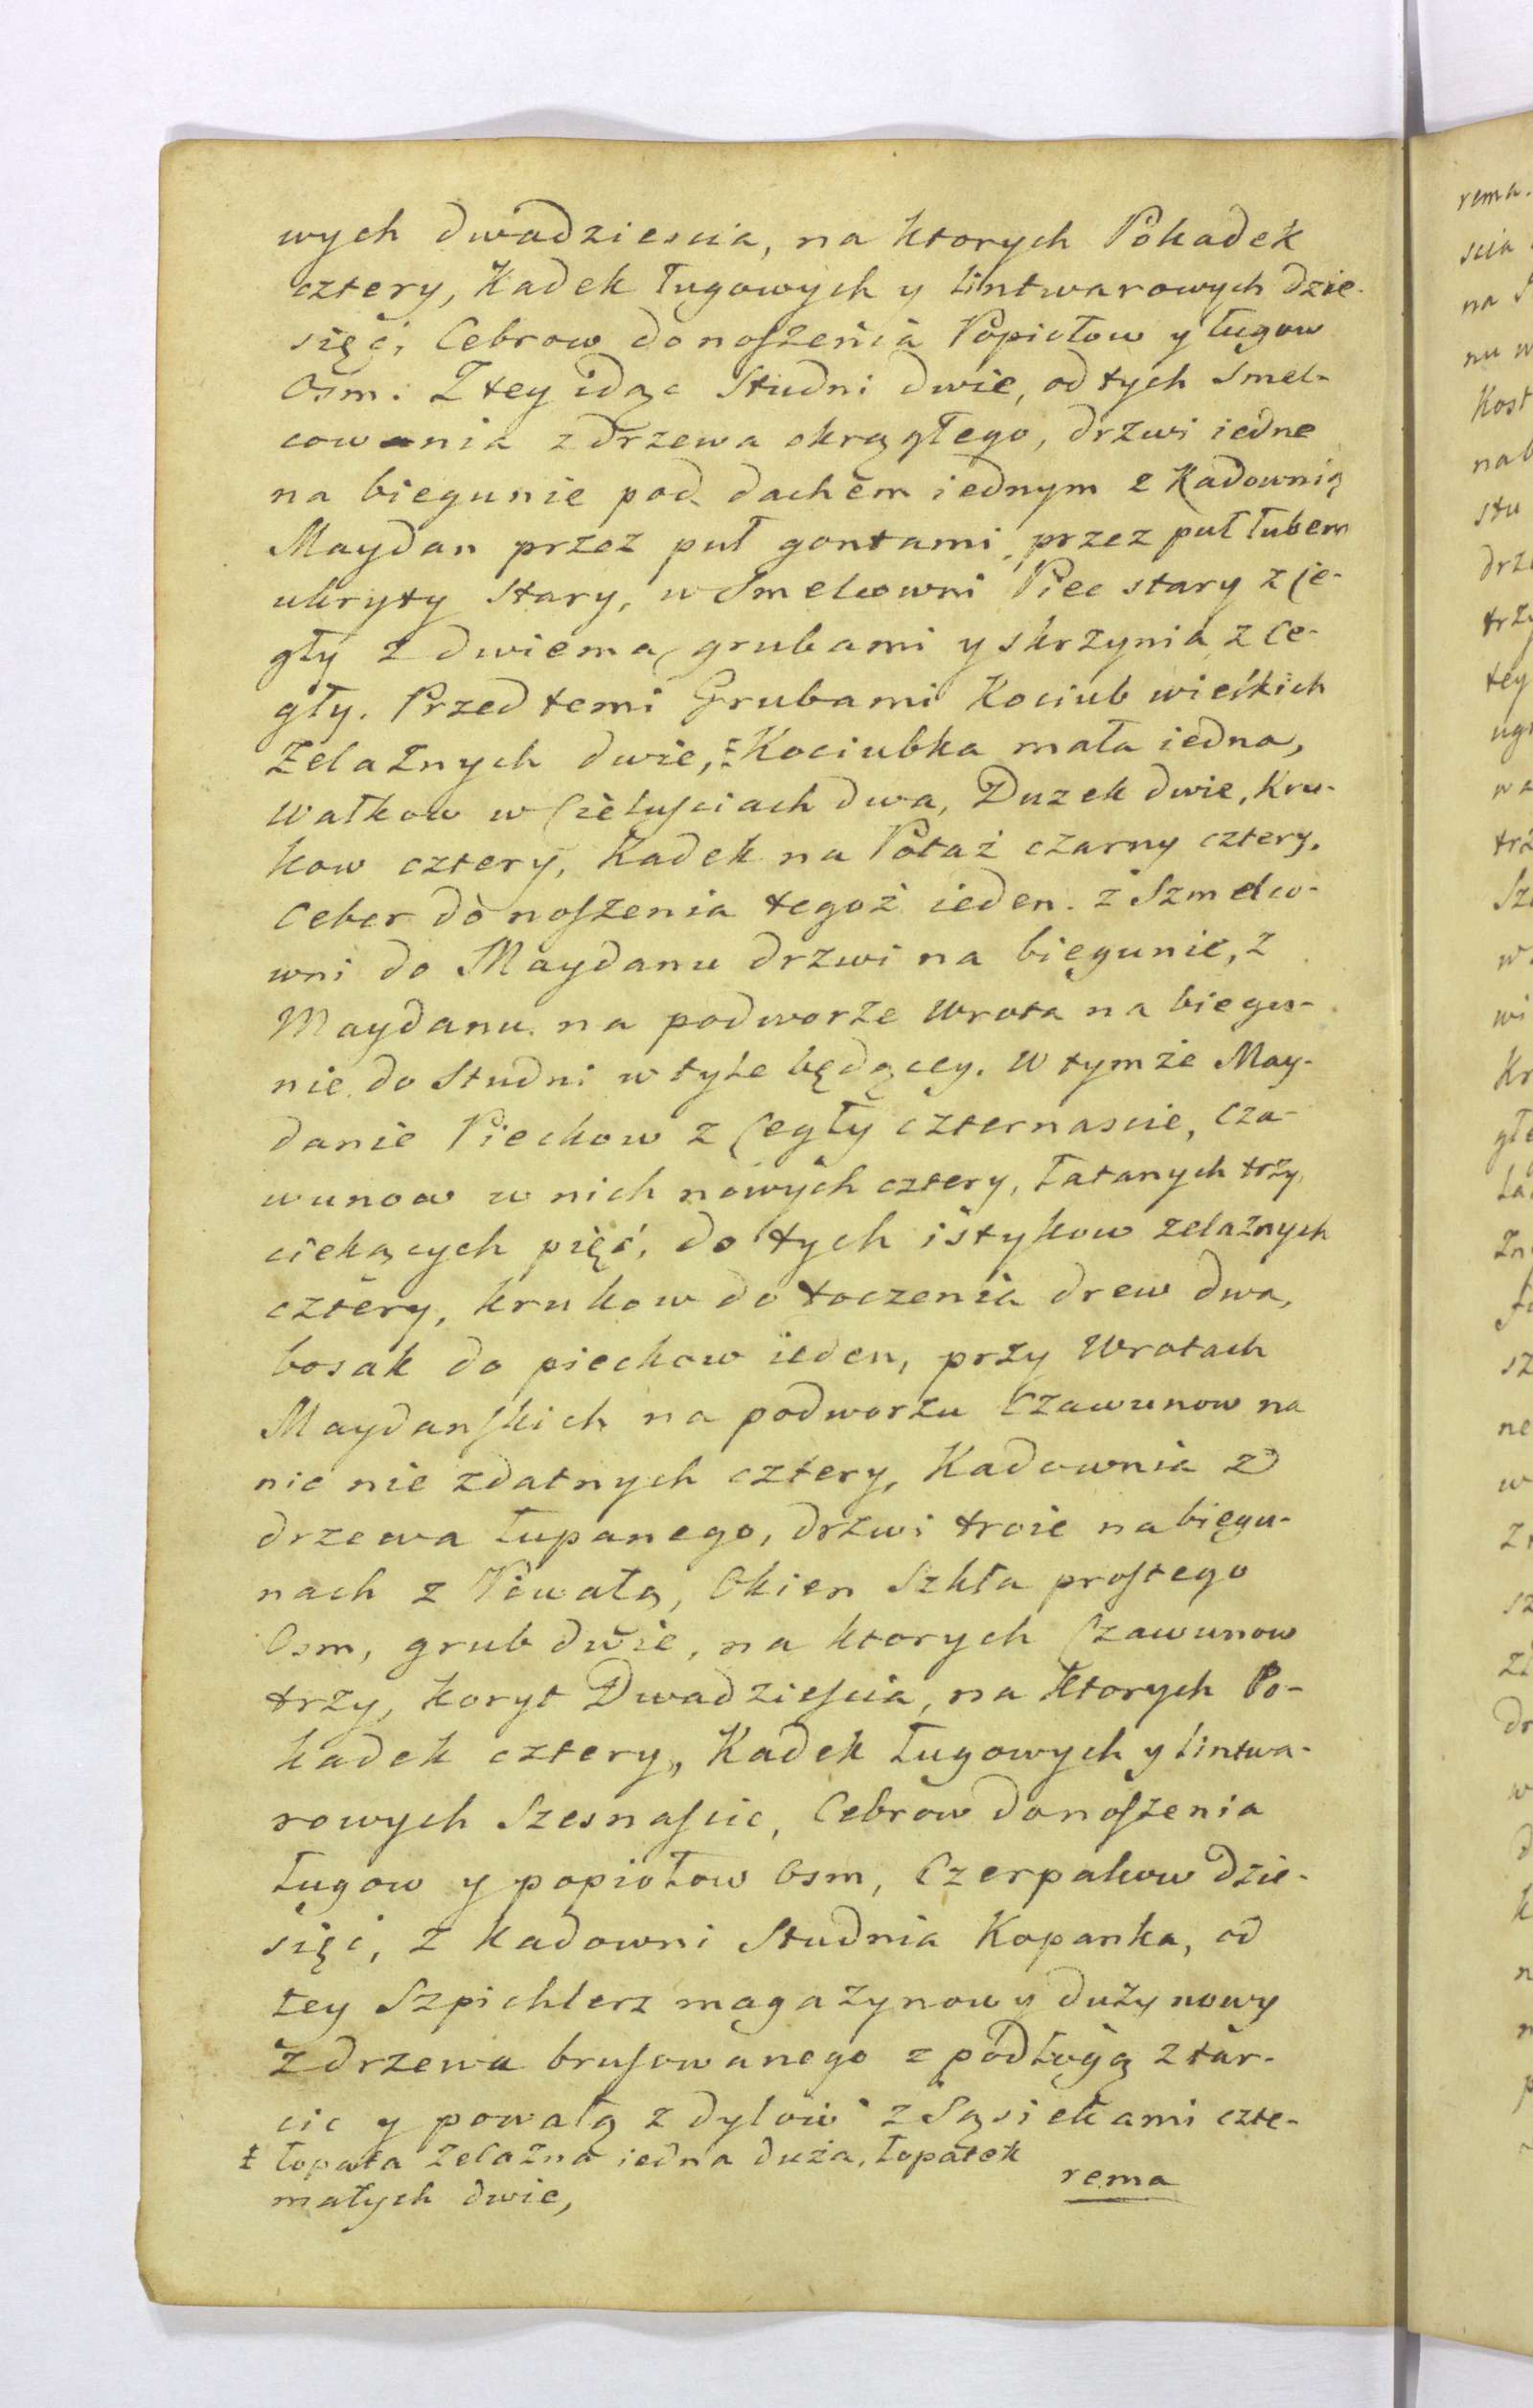 wych dwadziescia, na ktorych Pokadek
cztery, Kadek ługowych y lintwarowych dzie-
sięć, Cebrow do noszenia Popiołow y ługow
Osm. Z tey idąc Studni dwie, od tych Smel-
cownia z drzewa okrągłego, drzwi iedne
na biegunie pod dachem iednym z Kadownią
Maydan przez puł gontami, przez puł łubem
ukryty stary, w Smelcowni Piec stary z Ce-
gły z dwiema grubami y skrzynia z ce-
gły. Przed temi Grubami Kociub wielkich
Zelaznych dwie, ‡ Kociubka mała iedna,
Wałkow w Cieluściach dwa, Duzek dwie, Kru-
kow cztery, Kadek na Potaż czarny cztery.
Ceber do noszenia tegoż ieden. z Szmelco-
wni do Maydanu drzwi na biegunie, z
Maydanu na podworze Wrota na biegu-
nie do Studni w tyle będącey. W tymże May-
danie Piechow z Cegły czternascie, Cza-
wunow w nich nowych cztery, Łatanych trzy,
ciekących pięć, do tych istykow zelaznych
cztery, krukow do toczenia drew dwa,
bosak do piechow ieden, przy Wrotach
Maydanskich na podworzu Czawunow na
nic nie zdatnych cztery, Kadownia z
drzewa łupanego, drzwi troie na biegu-
nach z Powałą, Okien Szkła prostego
Osm, grub dwie, na ktorych Czawunow
trzy, koryt Dwadzieścia, na ktorych Po-
kadek cztery, Kadek Ługowych y lintwa-
rowych Szesnascie, Cebrow do noszenia
Ługow y popiołow Osm, Czerpakow dzie-
sięć, z kadowni Studnia Kopanka, od
tey Szpichlerz magazynowy duży nowy
z drzewa brusowanego z podłogą z tar-
cic y powałą z dylow z Sąsiekami czte-
‡ Łopata Zelazna iedna duża, łopatek
małych dwie,
rema
rema.
scia
na
nu w
Kost
nab
stu
drz
trzy
tey